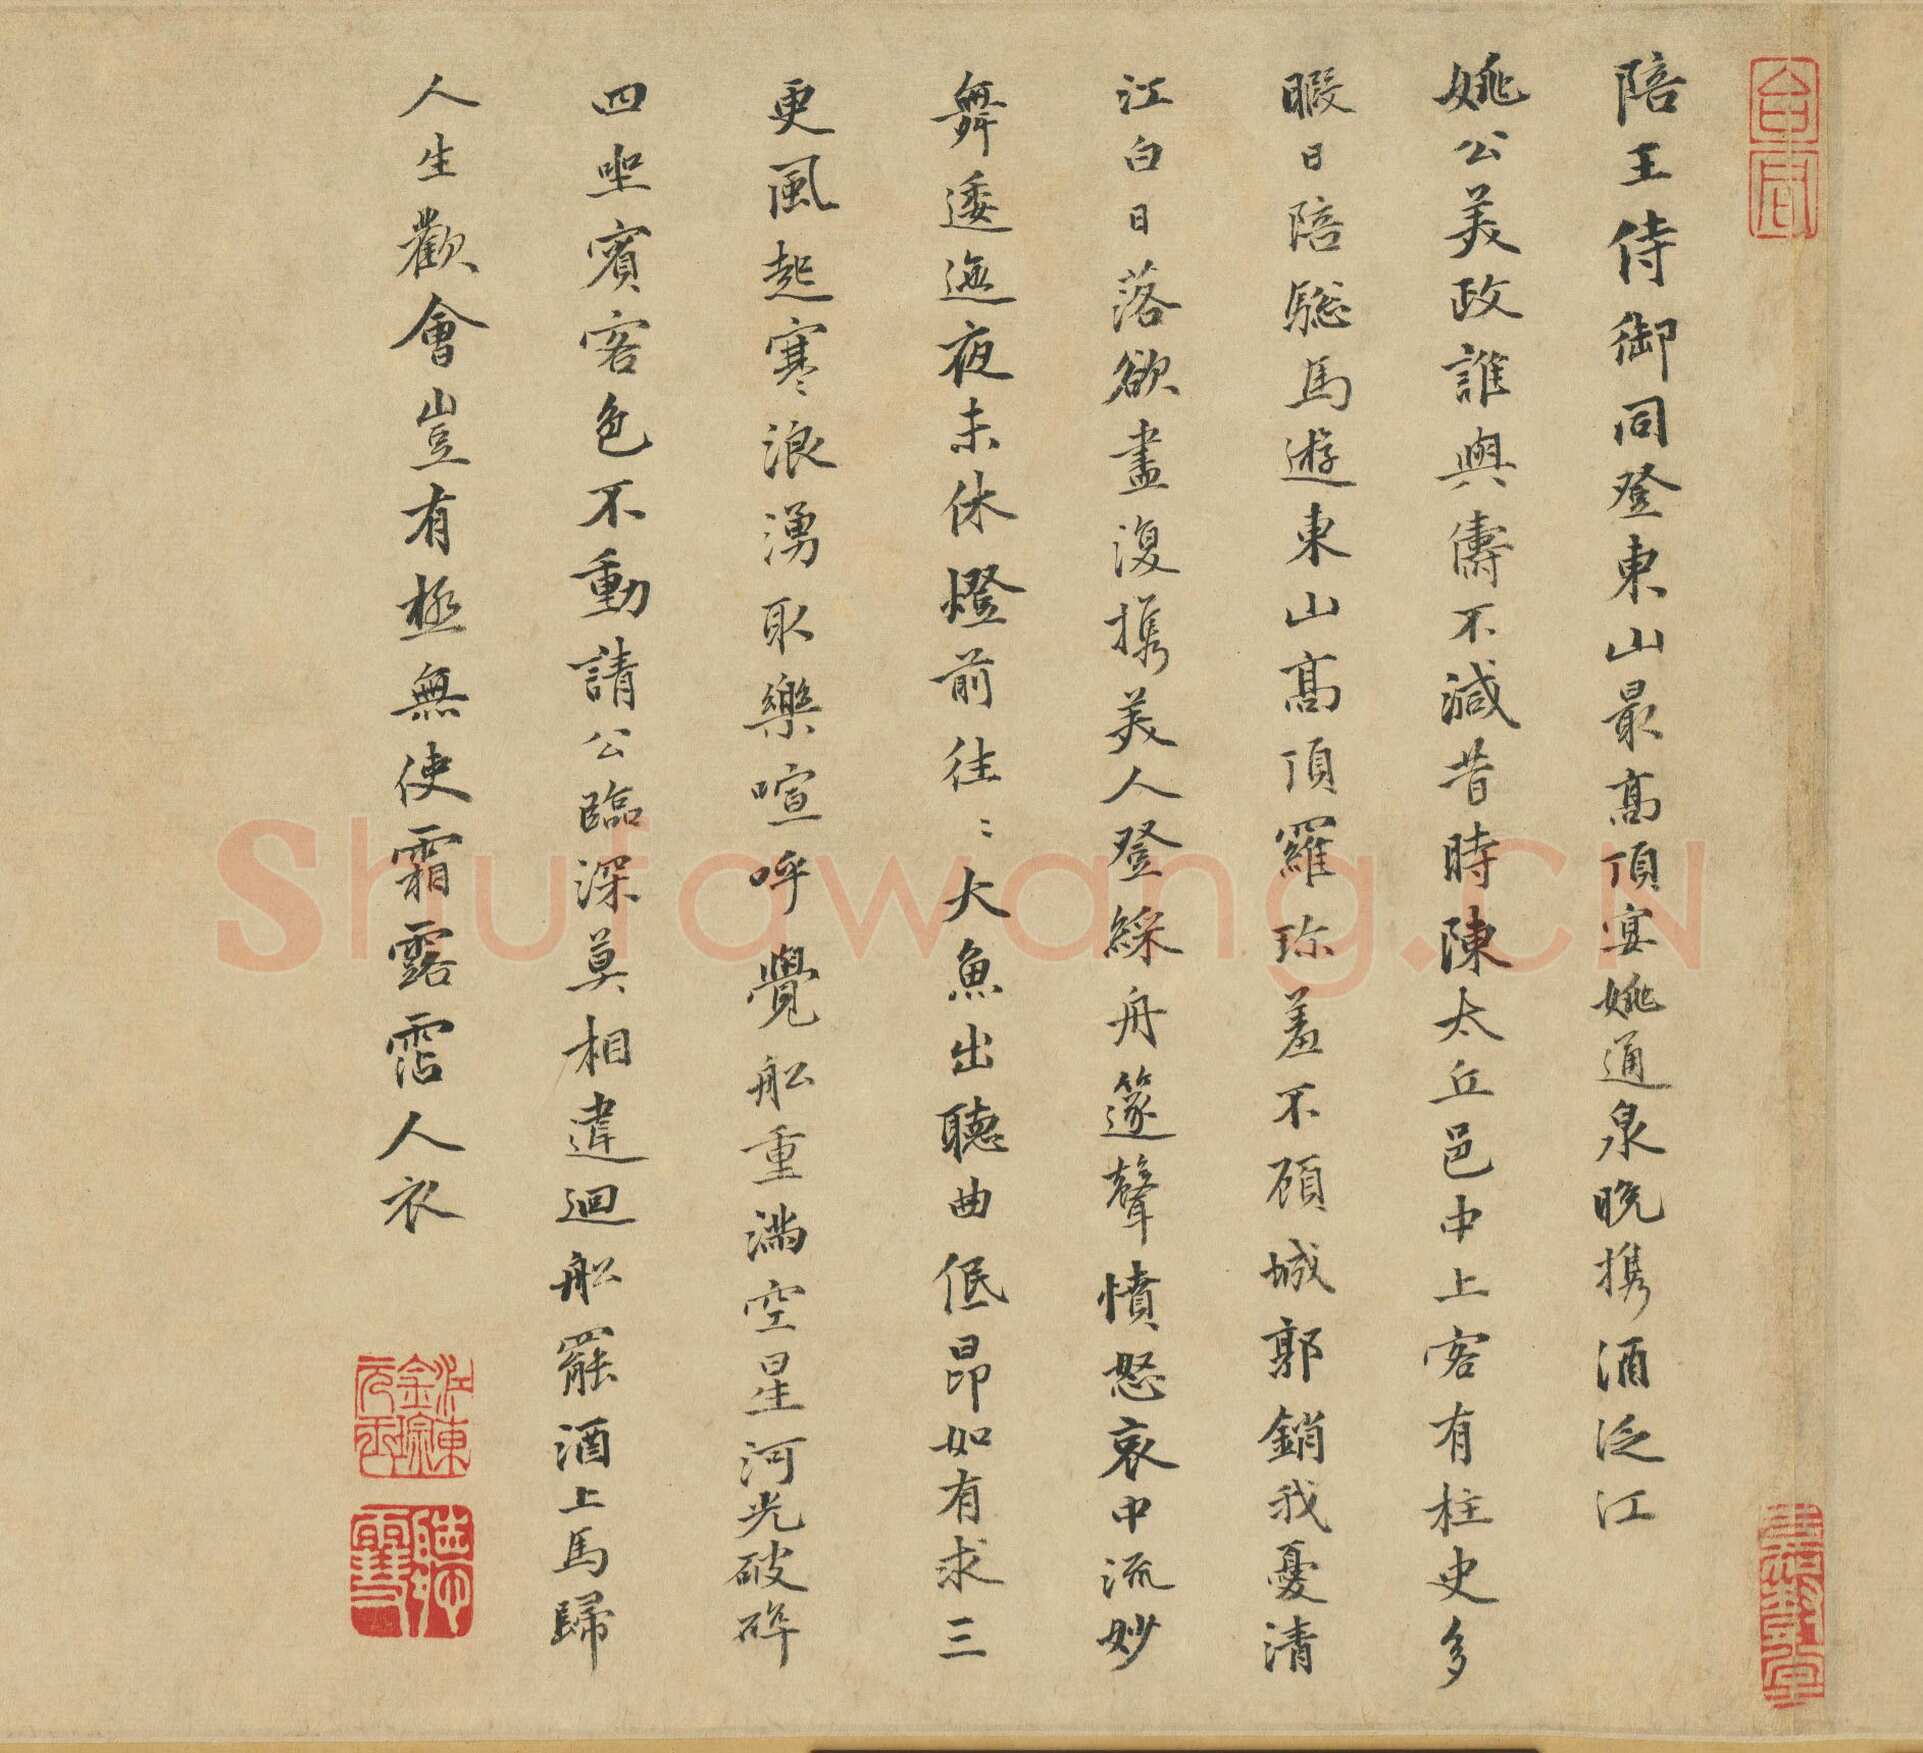 陪王侍御同登東山最高頂宴姚通泉晚携酒泛江
姚公美政誰與儔不減昔時陳太丘邑中上客有柱史多
暇日陪驄馬遊東山高頂羅珎羞不顧城郭銷我憂清
江白日落欲盡復携美人登綵舟篴聲憤怒哀中流妙
舞逶迤夜未休燈前往〻大魚出聽曲低昂如有求三
更風起寒浪湧取樂喧呼覺船重滿空星河光破碎
四坐賓客色不動請公臨深莫相違迴船罷酒上馬歸
人生歡會豈有極無使霜露霑人衣
shufawang.cn